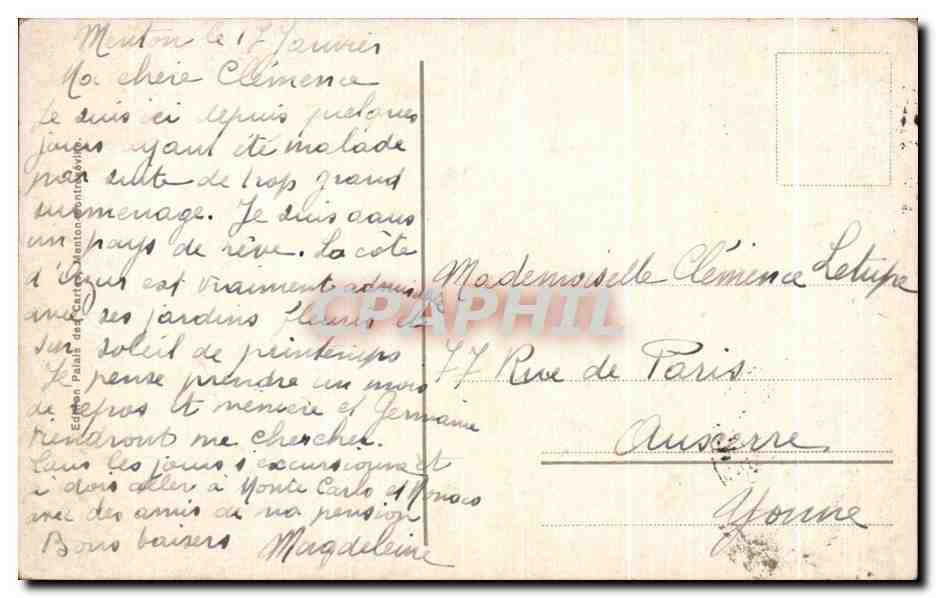 Menton le 17 Janvier
Ma chère Clémence
Je suis ici depuis quelques
jours ayant été malade
par suite de trop grand
surmenage. Je suis dans
un pays de rêve. La côte
d'Azur est vraiment admirable
avec ses jardins fleuris et
son soleil de printemps
Je pense prendre un mois
de repos et et Germaine
viendront me chercher.
Tous les jours j'excursionne et
je dois aller à Monte Carlo et Monaco
avec des amis de ma pension
Bons baisers Magdeleine
Mademoiselle Clémence Letupe
77 Rue de Paris
Auxerre
Yonne
Edition Palais des Cartes Menton
CPAPHIL